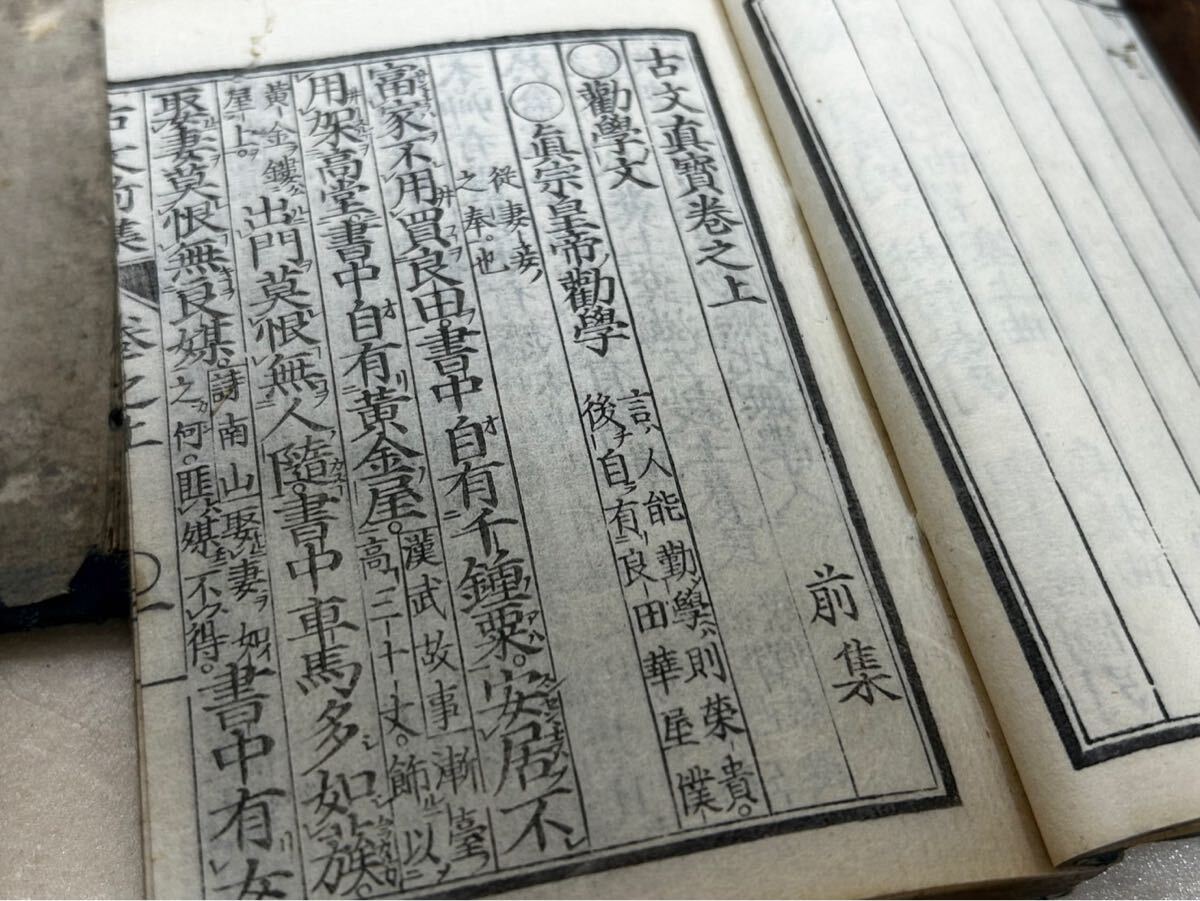 古文真寶卷之上 前集
○勸學文
○眞宗皇帝勸學
言人能勤學則榮貴。
後自有良田華屋僕
從妻妾
之奉也
富家不用買良田書中自有千鍾粟。安居不
用架高堂書中自有黃金屋。
漢武故事漸臺
高三十丈。飾以
黃金鏤
屋上。
出門莫恨無人隨。書中車馬多如簇。
娶妻莫恨無良媒。
詩南山娶妻如
之何。匪媒不得。
書中有女
古文前集 卷之上 一